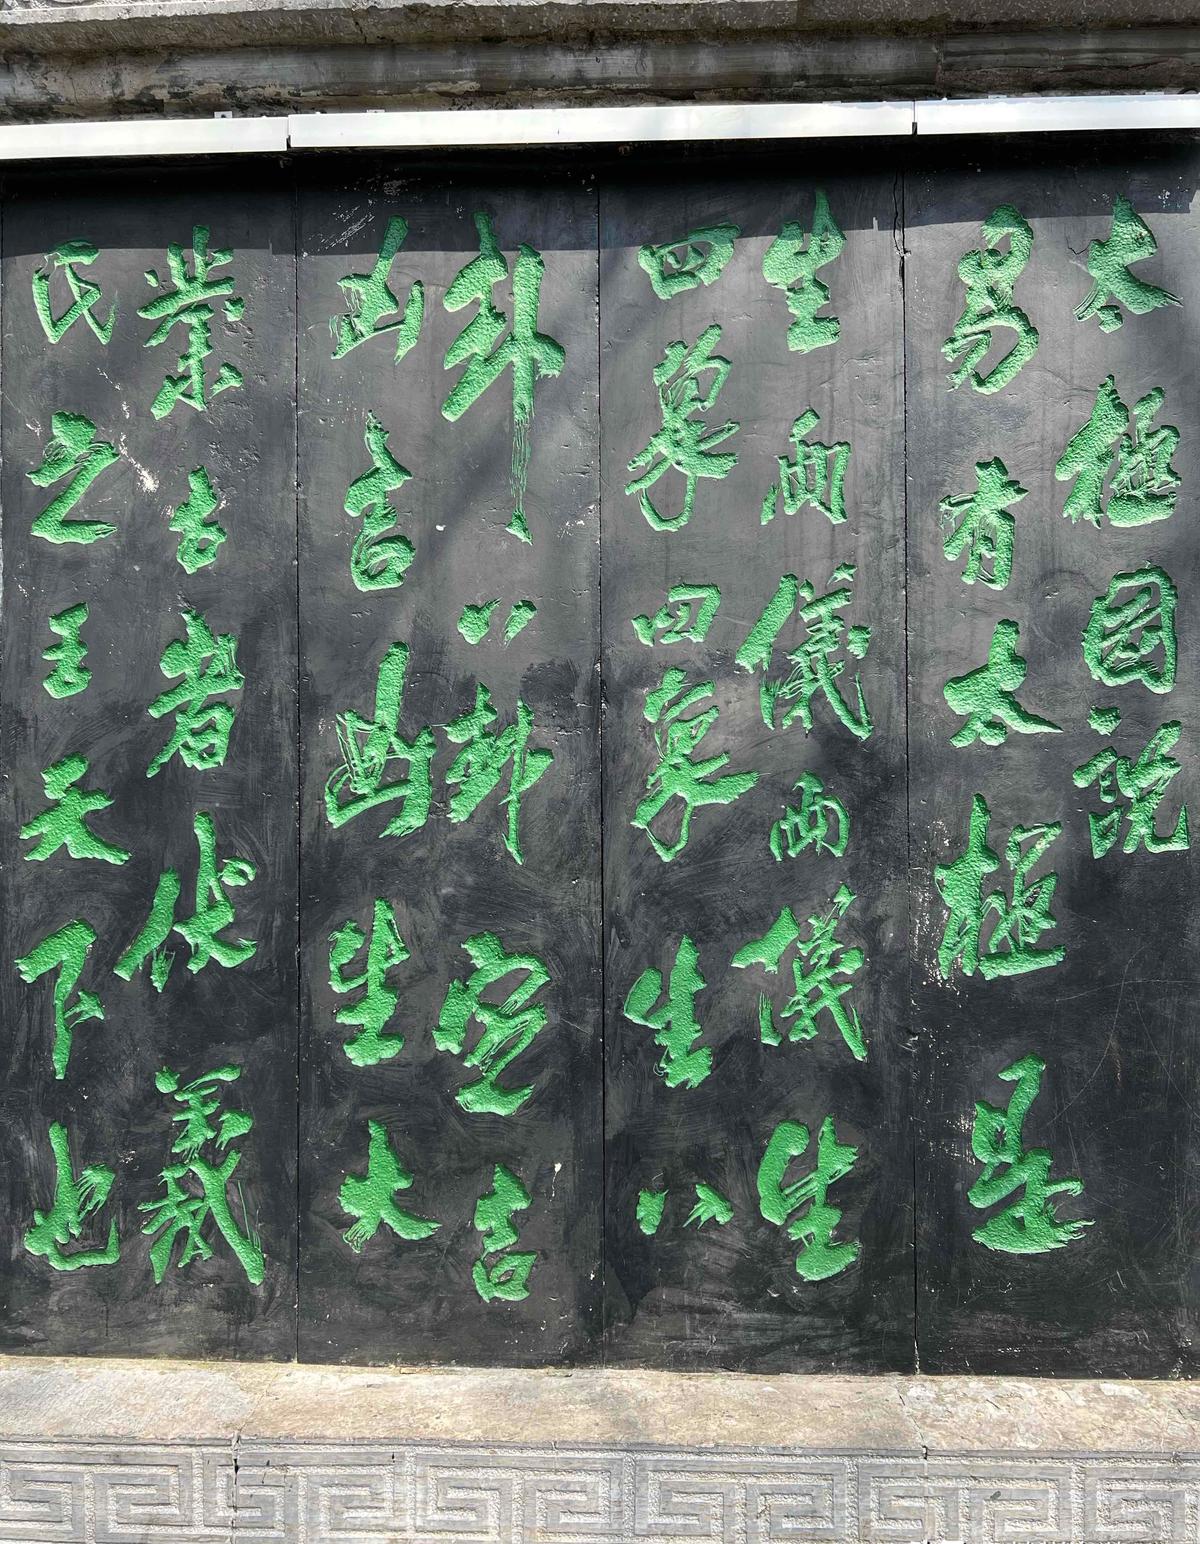 太極圖説
易有太極是
生兩儀兩儀生
四象四象生八
卦八卦定吉
凶吉凶生大
業古者伏羲
氏之王天下也